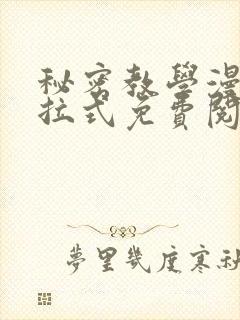 秘密教學漫
拉式免費閱
夢里幾度寒秋